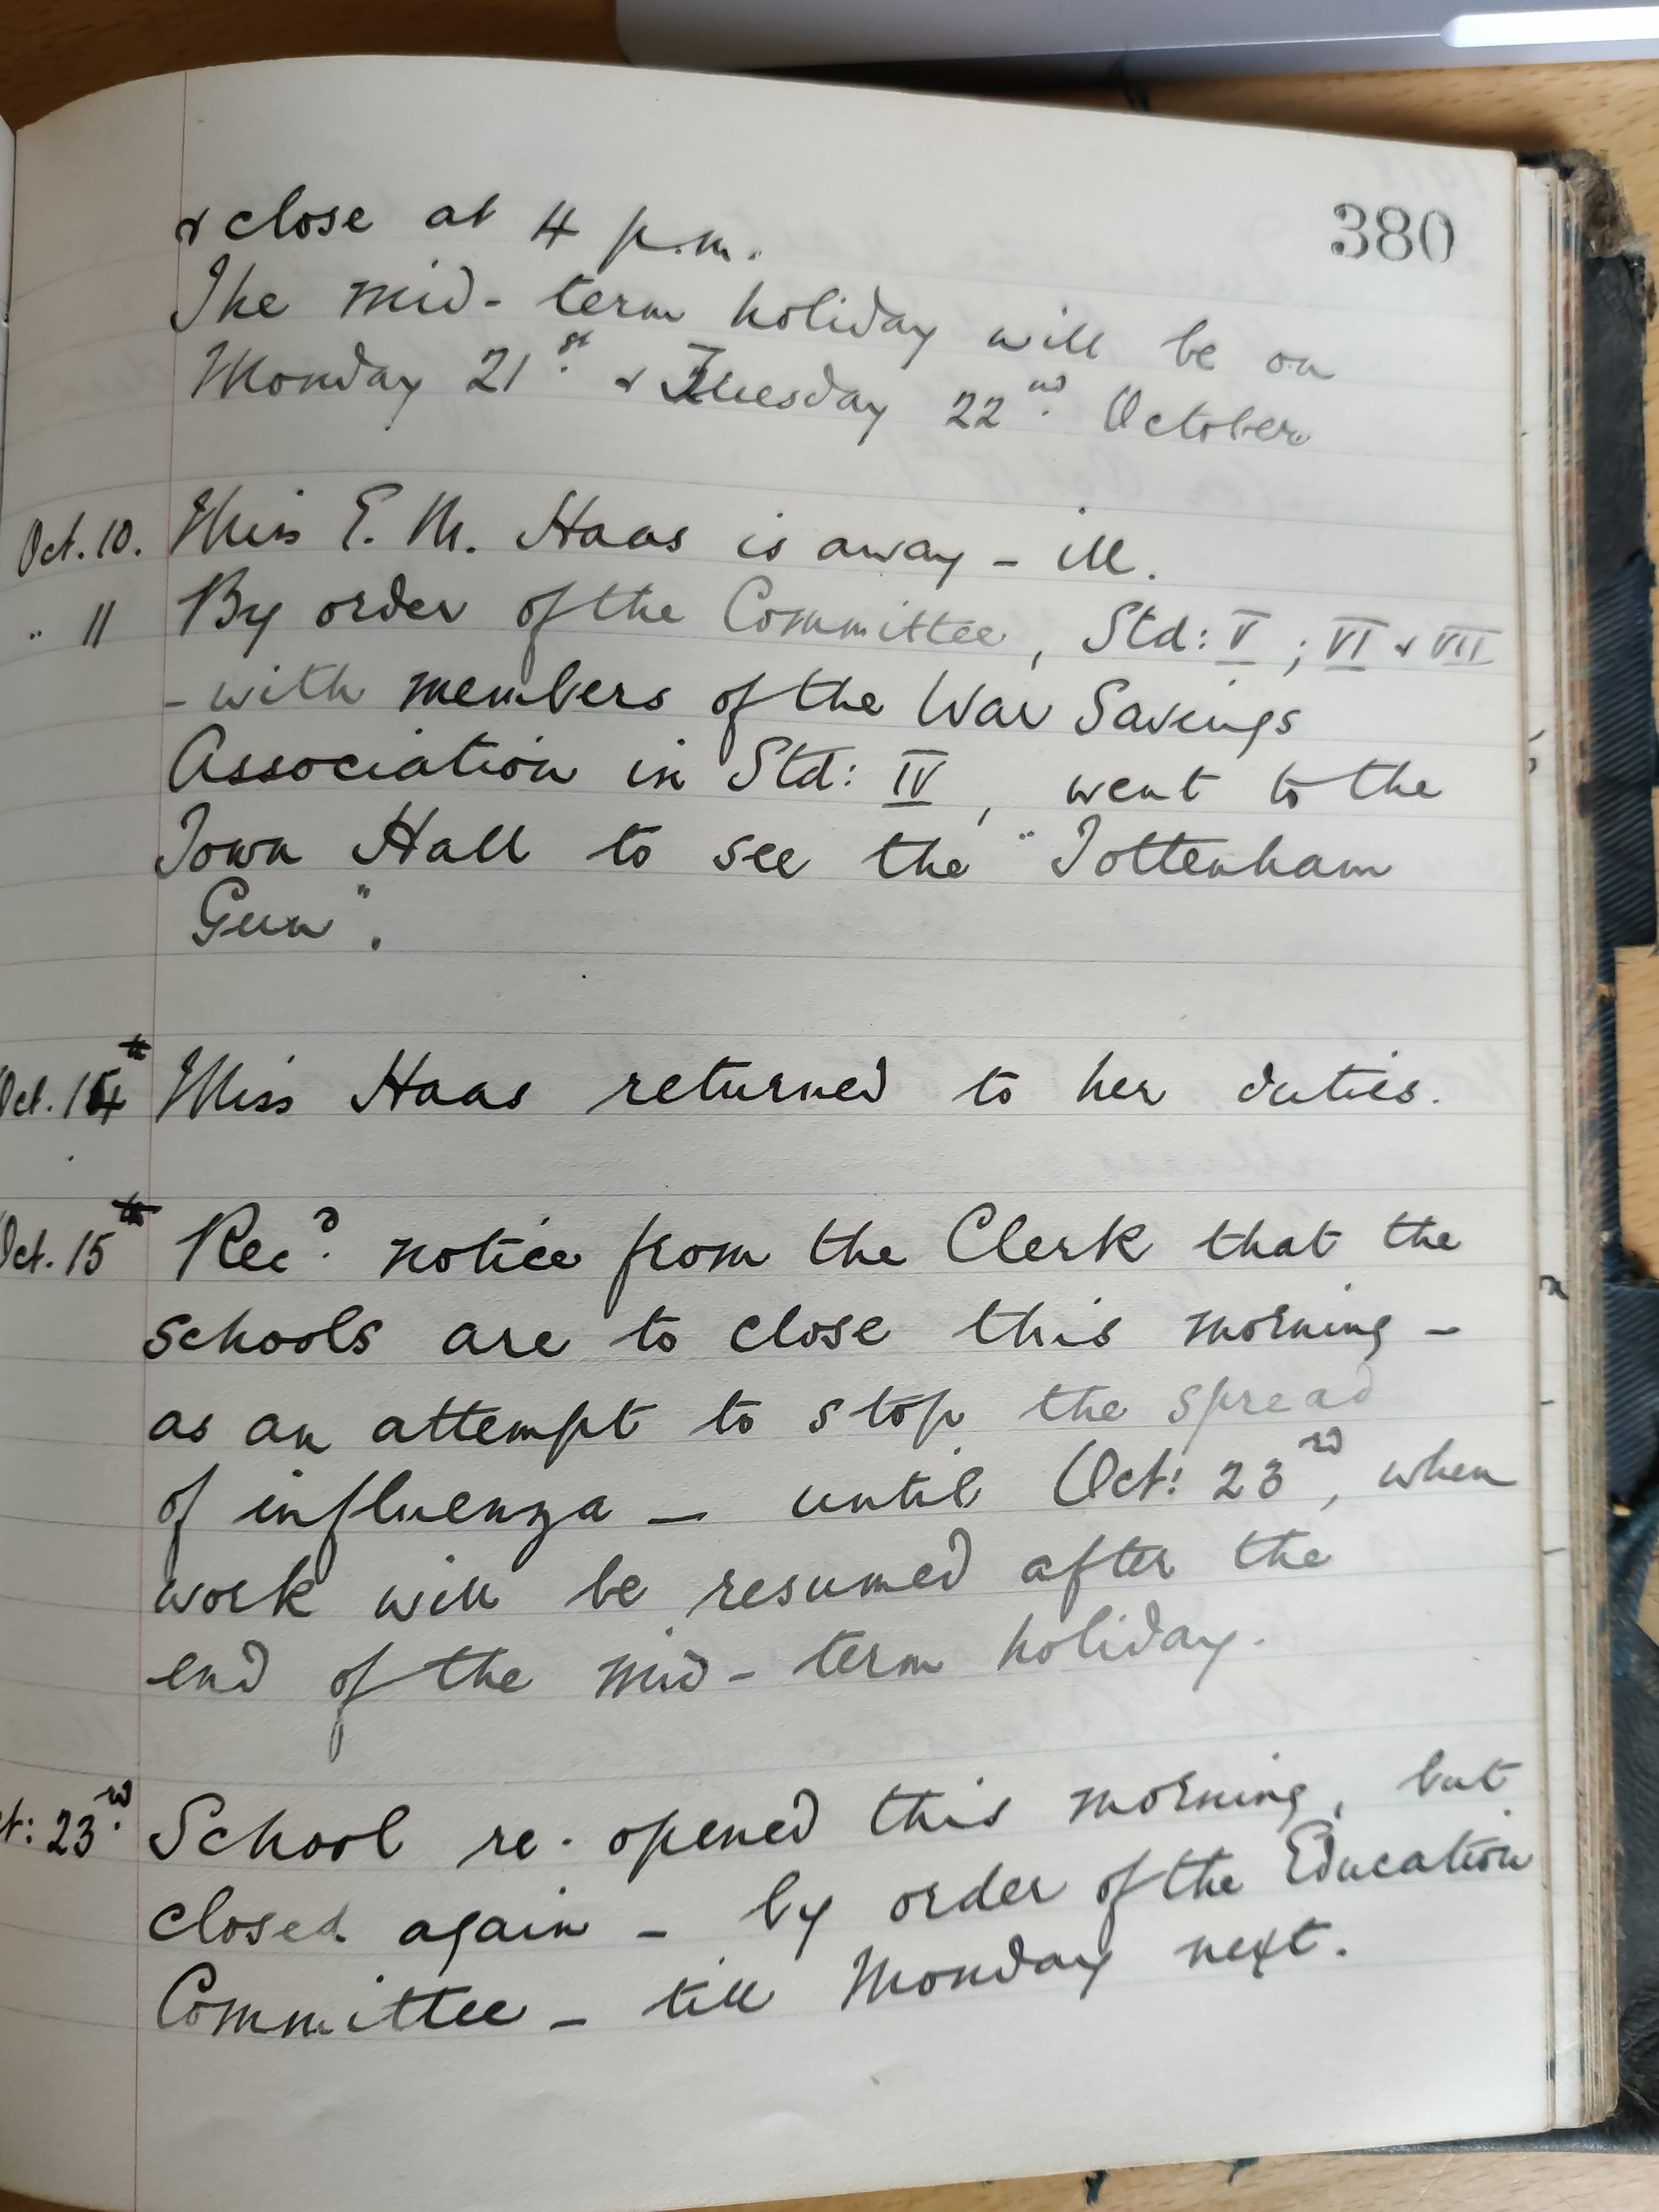 380
& close at 4 p.m.
The mid-term holiday will be on
Monday 21st. & Tuesday 22nd. October
Oct. 10. Miss E. M. Haas is away – ill.
" 11 By order of the Committee, Std: V ; VI & VII
– with members of the War Savings
Association in Std: IV, went to the
Town Hall to see the "Tottenham
Gun".
Oct. 14th Miss Haas returned to her duties.
Oct. 15th Recd. notice from the Clerk that the
schools are to close this morning –
as an attempt to stop the spread
of influenza – until Oct: 23rd, when
work will be resumed after the
end of the mid-term holiday.
ct: 23rd. School re-opened this morning, but
closed again – by order of the Education
Committee – till Monday next.